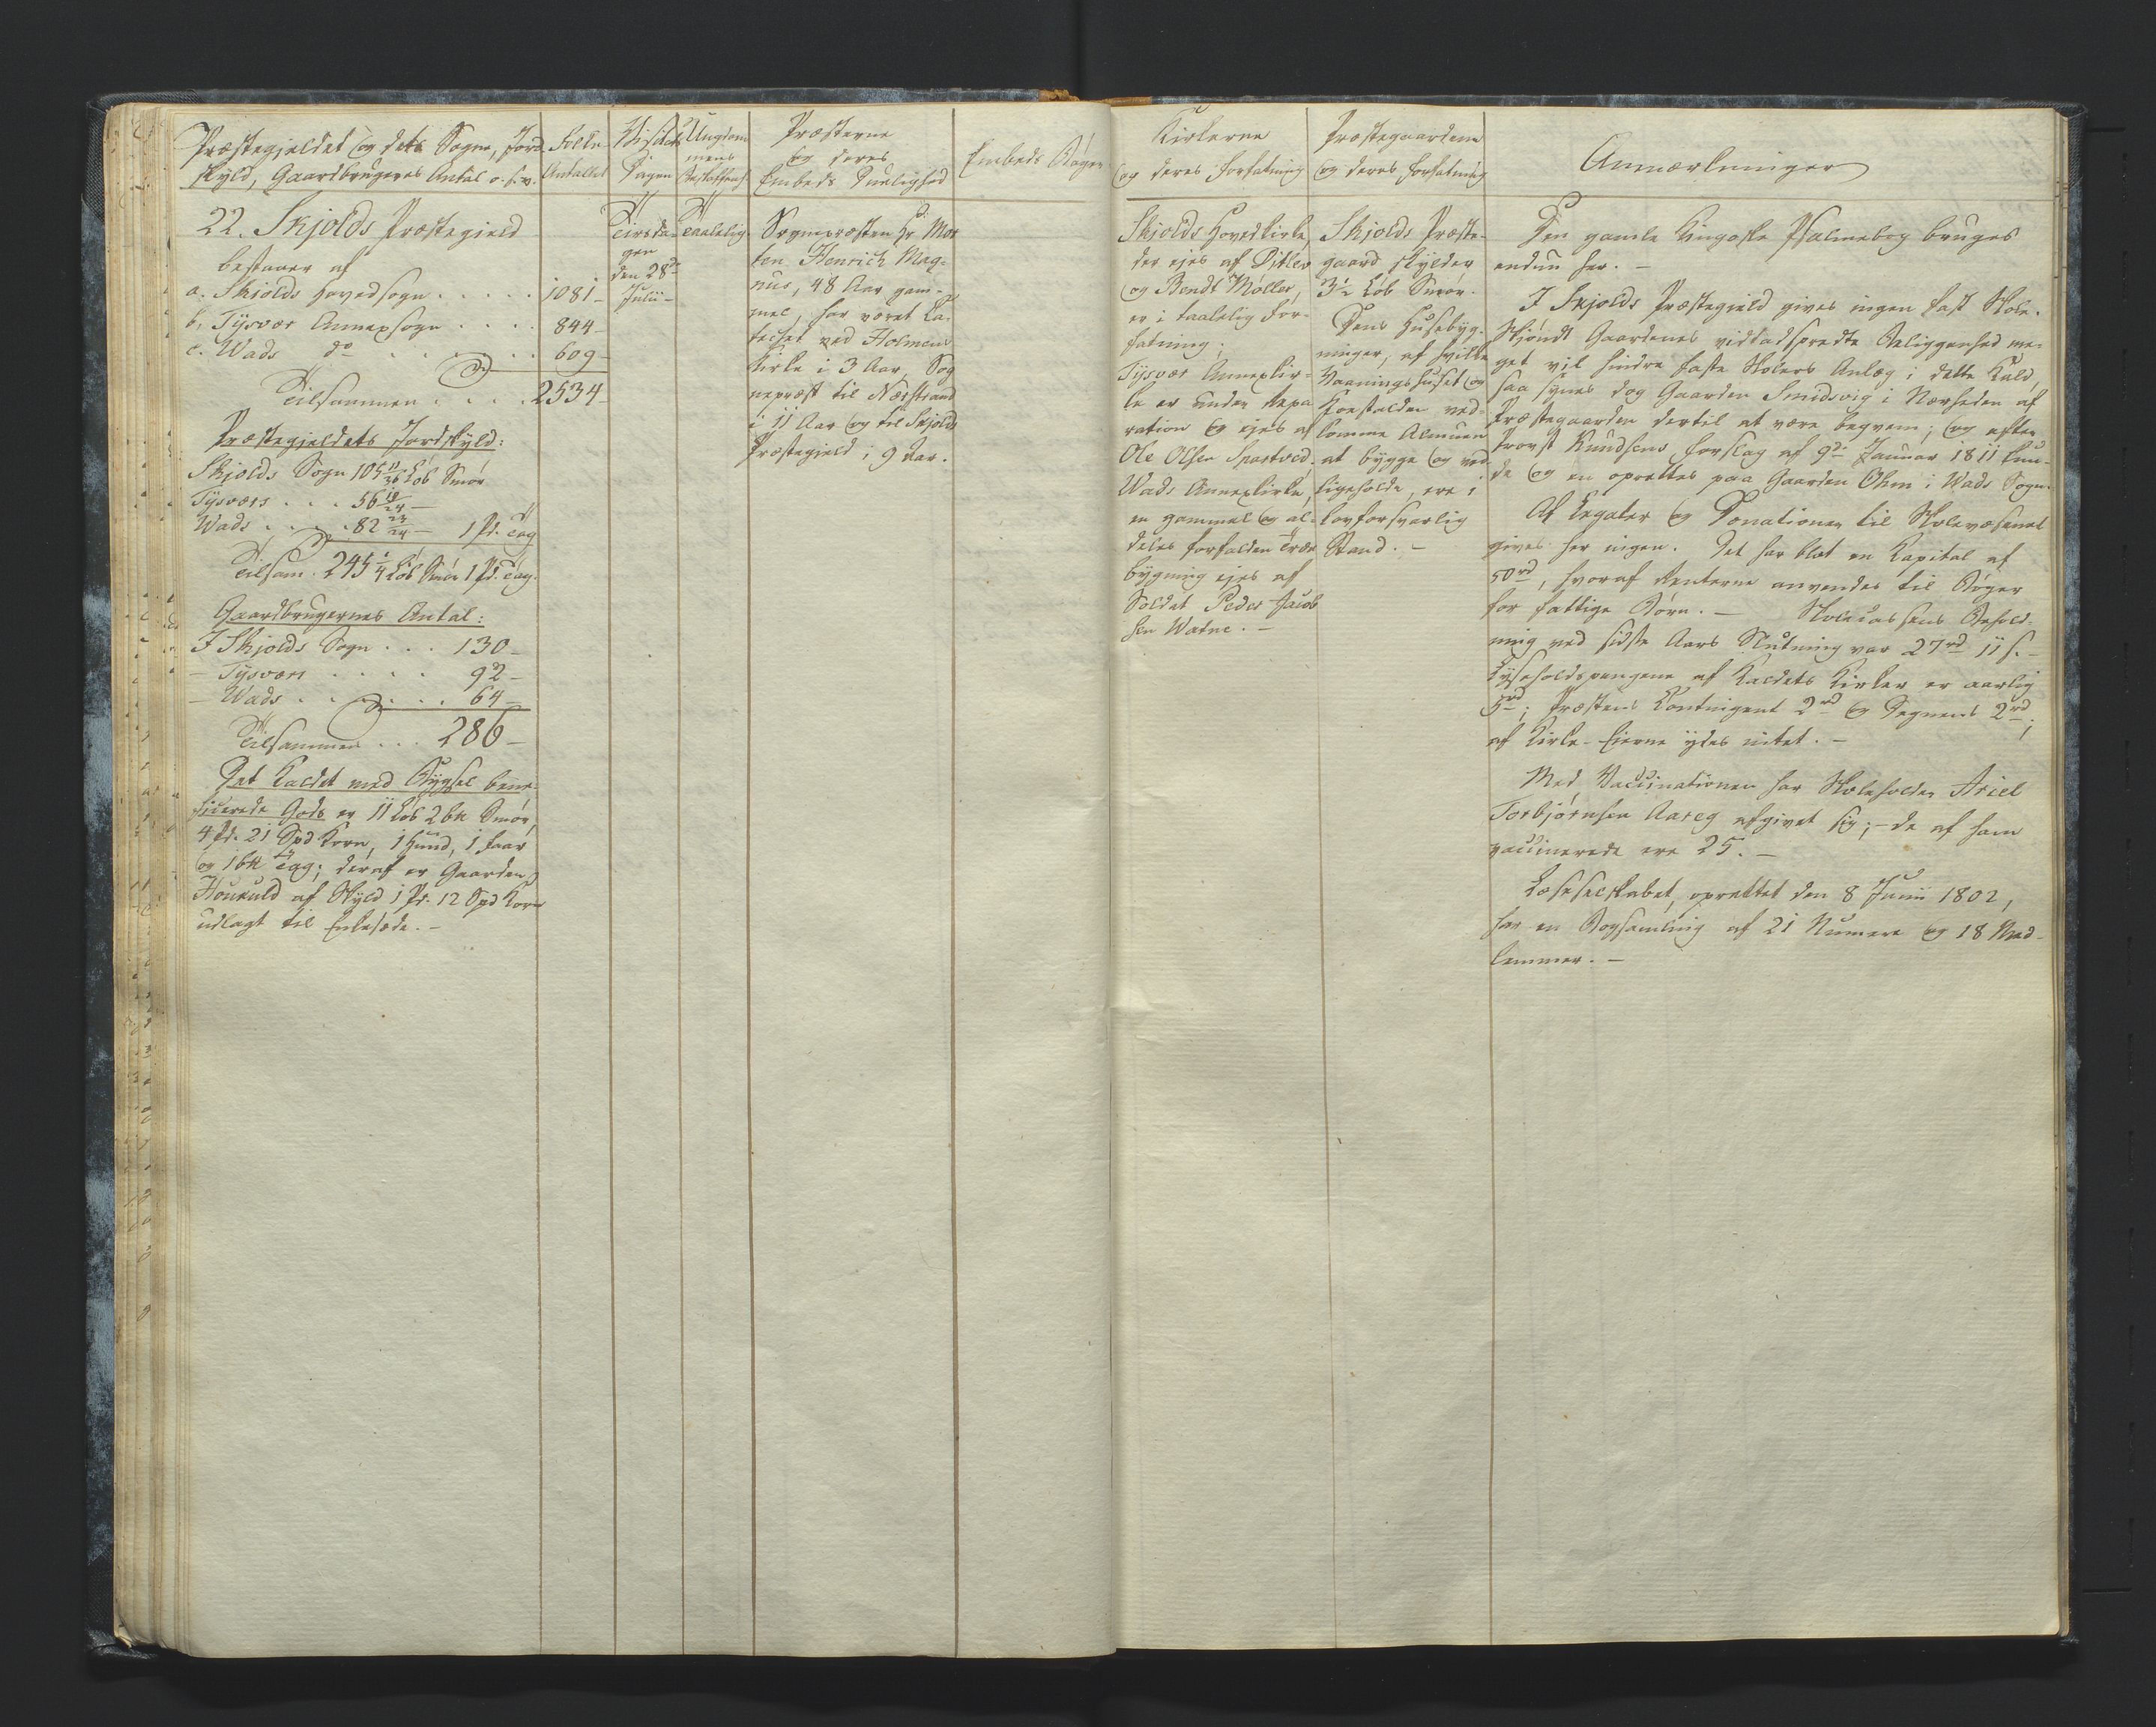 Præstegjeldet og dets Sogne, Jord
skyld, Gaardbrugeres Antal o. s. v.
Folke
Antallet
Visitats
Dagen
Ungdom
mens
Beskaffenh.
Præsterne
og deres
Embeds Duelighed
Embeds Bøger
22. Skjolds Præstegield
bestaaer af
a. Skiolds Hovedsogn . . . . . 1081 -
b. Tÿsvær Annexsogn . . . . 844 -
c. Wads do . . . . . . 609 -
Tilsammen . . . . 2534 -
Præstegjeldets Jordskÿld:
Skjolds Sogn 105 11/36 Løb Smør
Tÿsværs . . . 56 19/24 -
Wads . . . . . 82 23/24 - 1 Pd. Tag
Tilsam. 245 1/4 Løb Smør 1 Pd. Tag.
Gaardbrugernes Antal:
I Skjolds Sogn . . . 130 -
- Tÿsværs . . . . 92 -
- Wads . . . . . . 64 -
Tilsammen . . . 286 -
Det Kaldet med Bÿgsel bene-
ficerede Gods er 11 Løb 2 b℔ Smør,
4 Pd. 21 Spd Korn, 1 Hund, 1 Faar
og 1 b℔ Tag; deraf er Gaarden
Houkuld af Skÿld 1 Pd. 12 Spd Korn
udlagt til Enkesæde. -
Tirsda-
gen
den 28de
Julii -
Taalelig.
Sognepræsten Hr Mor
ten Henrich Mag-
nus, 48 Aar gam-
mel, har været Ca-
techet ved Holmens
Kirke i 3 Aar, Sog
nepræst til Nærstrand
i 11 Aar og til Skjolds
Præstegjeld i 9 Aar.
Kirkerne
og deres Forfatning
Præstegaardene
og deres Forfatning
Anmærkninger
Skjolds Hovedkirke,
der ejes af Ditlev
og Bendt Møller,
er i taalelig For-
fatning;
Tÿsvær Annexkir-
ke er under Repa
ration og ejes af
Ole Olsen Spartved.
Wads Annexkirke,
en gammel og al-
deles forfalden Træe
bÿgning ejes af
Soldat Peder Jacob
sen Watne. -
Skjolds Præste-
gaard skÿlder
3 1/2 Løb Smør.
Dens Husebÿg-
ninger, af hvilke
Vaaningshuset og
Foestalden ved-
komme Almuen
at bÿgge og ved
ligeholde, ere i
lovforsvarlig
Stand. -
Den gamle Kingoske Psalmebog bruges
endnu her. -
I Skjolds Præstegjeld gives ingen fast Skole.
Skjøndt Gaardenes vidtadspredte Beliggenhed me-
get vil hindre faste Skolers Anlæg i dette Kald,
saa sÿnes dog Gaarden Smedsvig i Nærheden af
Præstegaarden dertil at være beqvem; og efter
Provst Knudsens Forslag af 9de Januar 1811 kun-
de og en oprettes paa Gaarden Ølen i Wads Sogn.
Af Legater og Donationer til Skolevæsenet
gives her ingen. Det har blot en Kapital af
50rd, hvoraf Renterne anvendes til Bøger
for fattige Børn. - Skolecassens Behold-
ning ved sidste Aars Slutning var 27rd 11 s. -
Lÿseholdspengene af Kaldets Kirker er aarlig
5rd; Præstens Contingent 2rd og Degnens 2rd;
af Kirke-Eierne ÿdes intet. -
Med Vaccinationen har Skoleholder Ariel
Torbjørnsen Aareg afgivet sig; - de af ham
vaccinerede ere 25. -
Læseselskabet, oprettet den 8 Junii 1802,
har en Bogsamling af 21 Numere og 18 Med-
lemmer. -